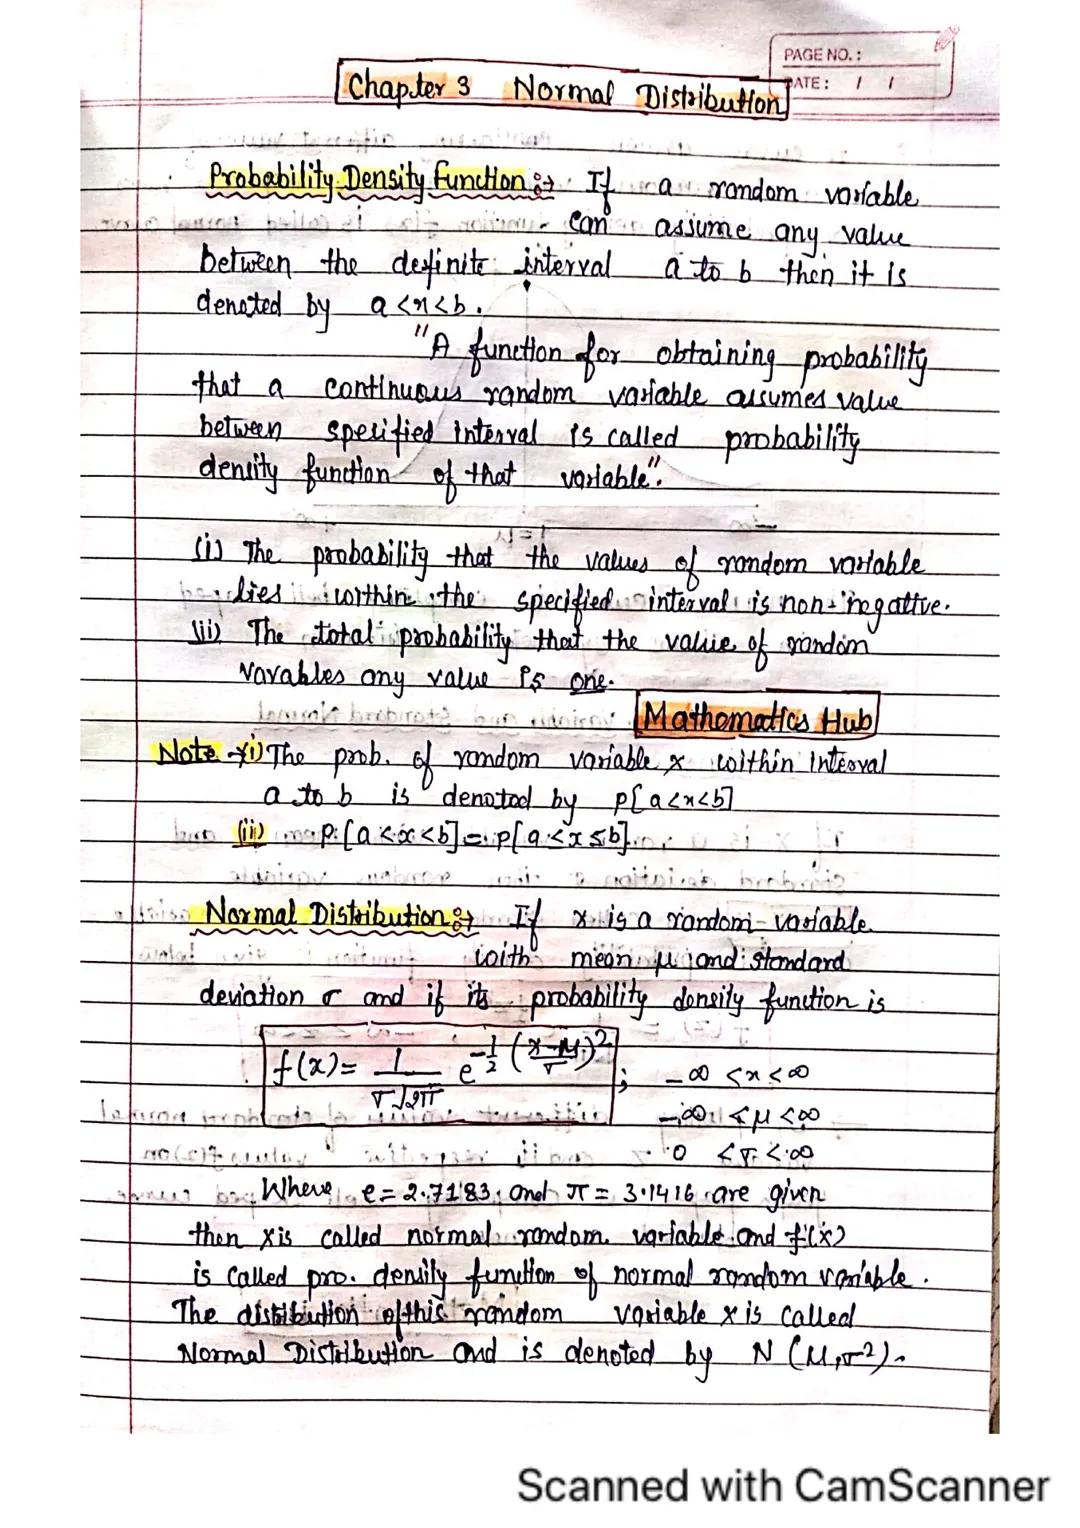 PAGE NO.:
DATE: / /
Chapter 3 Normal Distribution
Probability Density Function :→ If a random variable
can assume any value
between the definite interval a to b then it is
denoted by a<x<b.
"A function for obtaining probability
that a continuous random variable assumes value
between specified interval is called probability
density function of that variable".
(i) The probability that the values of random variable
lies within the specified interval is non-negative.
(ii) The total probability that the value of random
varables any value is one.
Mathematics Hub
Note →(i) The prob. of random variable x within interval
a to b is denoted by p[a<x<b]
(ii) p[a<x<b] = p[a≤x≤b].
Normal Distribution :→ If x is a random variable
with mean μ and standard
deviation σ and if its probability density function is
f(x) = 1/(σ√2π) e^(-1/2 ((x-μ)/σ)^2) ; -∞ <x<∞
-∞ <μ<∞
0 <σ<∞
Where e = 2.7183 and π = 3.1416 are given
then x is called normal random variable and f(x)
is called pro. density function of normal random variable.
The distribution of this random variable x is called
Normal Distribution and is denoted by N (μ,σ²).
Scanned with CamScanner